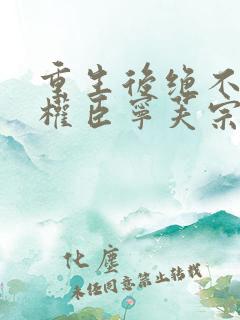 重生後绝不
權臣寧芙宗
化塵
未任同意禁止转载